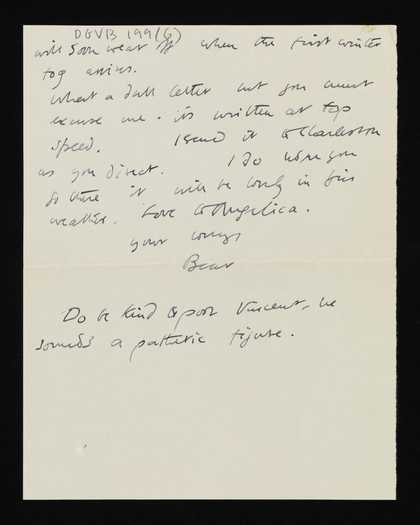 DGVB 199(G)
will soon wear off when the first winter
fog arrives.
What a dull letter but you must
excuse me - its written at top
speed. I send it to Charleston
as you direct. I do hope you
go there it will be lovely in this
weather. Love to Angelica.
your loving
Bear
Do be kind to poor Vincent, he
sounds a pathetic figure.